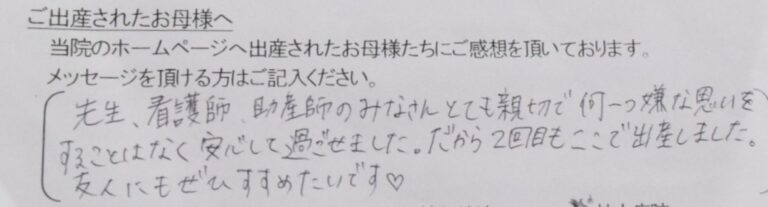 ご出産されたお母様へ
当院のホームページへ出産されたお母様たちにご感想を頂いております。
メッセージを頂ける方はご記入ください。
先生、看護師、助産師のみなさんとても親切で何一つ嫌な思いを
することはなく安心して過ごせました。だから2回目もここで出産しました。
友人にもぜひすすめたいです♡